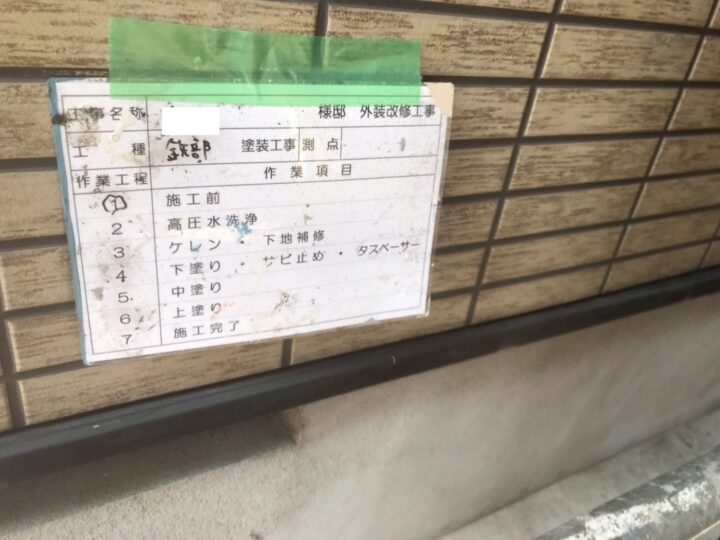 工事名称 様邸 外装改修工事
工種 鉄部 塗装工事 測点
作業工程 作業項目
1 施工前
2 高圧水洗浄
3 ケレン・下地補修
4 下塗り・サビ止め・タスペーサー
5 中塗り
6 上塗り
7 施工完了